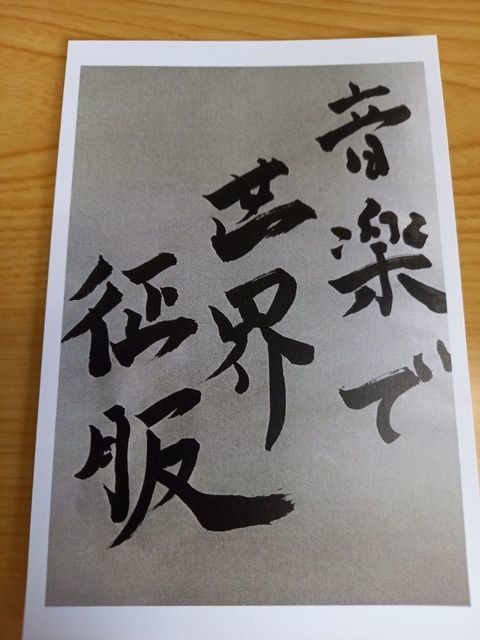 音楽で
世界
征服